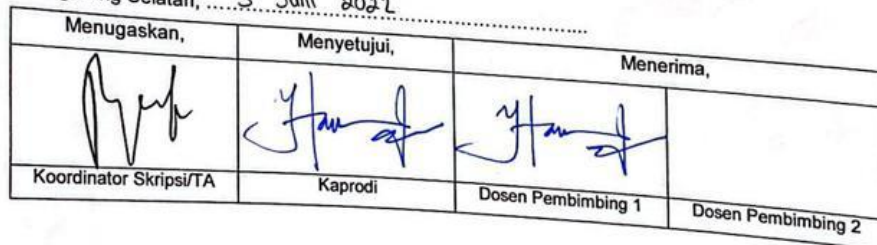 Selatan, ..... 3 Juni 2022 .....
Menugaskan, Menyetujui, Menerima,
Koordinator Skripsi/TA Kaprodi Dosen Pembimbing 1 Dosen Pembimbing 2